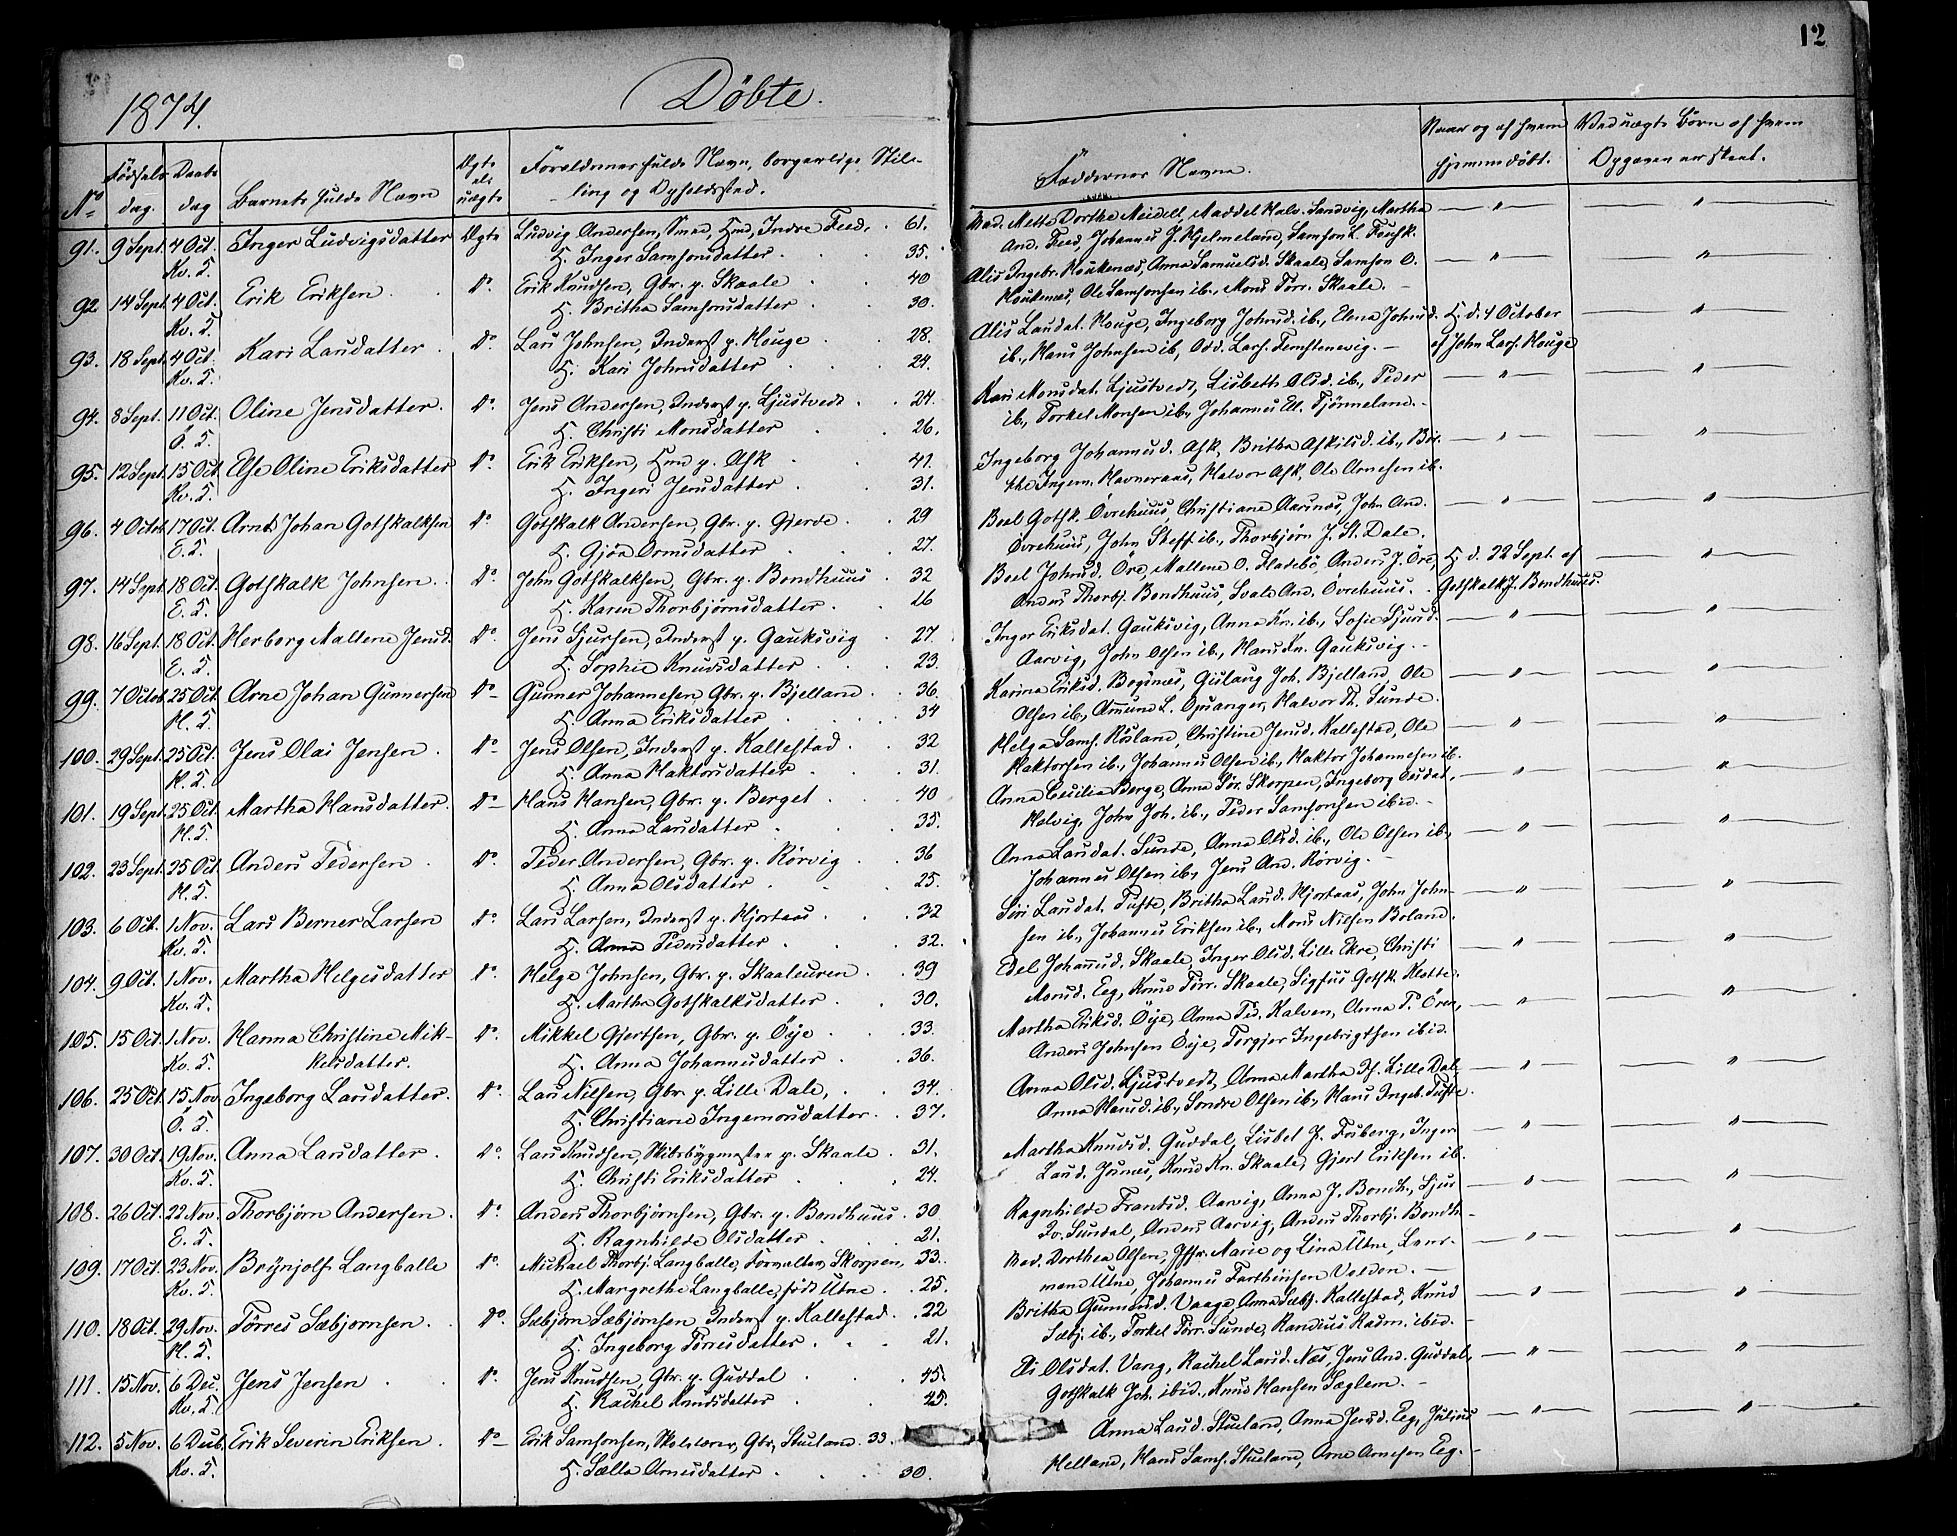 12
1874.
Döbte.
No
Fødsels dag.
Daabs dag
Barnets fulde Navn
Ægte el. uægte
Forældrenes fulde Navn, borgerlige Stilling og Opholdssted.
Faddernes Navne.
Naar og af hvem hjemmedöbt.
Ved uægte Börn af hvem Opgaven er skeet.
91. 9 Sept. 4 Oct. Inger Ludvigsdatter Ægte Ludvig Andersen, Smed, Hmd, Indre Feed, 61. Mad. Mette Dorthea Meidell, Maddel Halv. Sandvig, Martha
Kv. S. H. Inger Samsonsdatter 35. And. Feed, Johannes J. Hjelmeland, Samson L.
92. 14 Sept. 4 Oct. Erik Eriksen Do. Erik Knudsen, Gbr. p. Skaale 40 Alis Ingebr. Houkenæs, Anna Samuelsd. Skaale, Samson O.
Kv. S. H. Britha Samsonsdatter 30. Houkenæs, Ole Samsonsen ib., Mons Törr. Skaale.
93. 18 Sept. 4 Oct. Kari Larsdatter Do. Lars Johnsen, Inderst p. Houge 28. Alis Larsdat. Houge, Ingeborg Johnsd. ib., Elena Johnsd. H. d. 4 October
Kv. S. H. Kari Johnsdatter 24. ib., Hans Johnsen ib, Odd. Lars. Femstenevig. af John Lars. Houge
94. 8 Sept. 11 Oct. Oline Jensdatter. Do. Jens Andersen, Inderst p. Ljustvedt 24. Kari Monsdat. Ljustvedt, Lisbeth Olsd. ib., Peder
Ö S. H. Christi Monsdatter 26. ib., Torkel Monsen ib., Johannes Ell. Tjönneland.
95. 12 Sept. 15 Oct. Else Oline Eriksdatter Do. Erik Eriksen, Hmd p. Ask 41. Ingeborg Johannesd. Ask, Britha Askilsd. ib., Bri-
Kv. S. H. Ingeri Jensdatter 31. tha Ingem. Havneraas, Halvor Ask, Ole Arnesen ib.
96. 4 Octob. 17 Oct. Arnt Johan Gotskalksen Do. Gotskalk Andersen, Gbr. p. Gjerde 29 Boel Gotsk. Övrehuus, Christiane Aarsnæs, John And.
E. S. H. Gjöa Ormsdatter 27. Övrehuus, John Steff. ib., Thorbjörn J. St. Dale.
97. 14 Sept. 18 Oct. Gotskalk Johnsen. Do. John Gotskalksen, Gbr. p. Bondhuus 32 Boel Johnsd. Öre, Mallene O. Fladebö, Anders J. Öre, H. d. 22 Sept. af
E. S. H. Karen Thorbjörnsdatter 26 Anders Thorbj. Bondhuus, Svale And. Övrehuus. Gotskalk J. Bondhuus.
98. 16 Sept. 18 Oct. Herborg Mallene Jensd. Do. Jens Sjursen, Inderst p. Gauksvig 27. Inger Eriksdat. Gauksvig, Anna Kn. ib., Sofie Sjursd.
E. S. H. Sophie Knudsdatter 23. Aarvig, John Olsen ib., Hans Kn. Gauksvig.
99. 7 Octob. 25 Oct. Arne Johan Gunnersen Do. Gunner Johannesen Gbr. p. Bjelland 36. Karina Eriksd. Bogsnæs, Gislaug Joh. Bjelland, Ole
H. S. H. Anna Eriksdatter 34 Olsen ib., Amund L. Opsanger, Halvor Th. Sunde.
100. 29 Sept. 25 Oct. Jens Olai Jensen Do. Jens Olsen, Inderst p. Kallestad 32 Helga Sams. Rösland, Christine Jensd. Kallestad, Ole
H. S. H. Anna Haktorsdatter 31. Haktorsen ib., Johannes Olsen ib., Haktor Johannesen ib.
101. 19 Sept. 25 Oct. Martha Hansdatter. Do. Hans Hansen, Gbr. p. Berget 40 Anna Cecilia Berge, Anna Tör. Skorpen, Ingeborg
H. S. H. Anna Larsdatter 35. Halvig, John Joh. ib., Peder Samsonsen ibid.
102. 23 Sept. 25 Oct. Anders Pedersen Do. Peder Andersen, Gbr. p. Rörvig 36 Anna Larsdat. Sunde, Anna Olsd. ib., Ole Olsen ib.,
H. S. H. Anna Olsdatter 25. Johannes Olsen ib., Jens And. Rörvig.
103. 6 Oct. 1 Nov. Lars Berner Larsen Do. Lars Larsen, Inderst p. Hjortaas 32 Siri Larsdat. Tufte, Britha Larsd. Hjortaas, John John-
Kv. S. H. Anna Pedersdatter 32. sen ib., Johannes Eriksen ib., Mons Nilsen Boland.
104. 9 Oct. 1 Nov. Martha Helgesdatter Do. Helge Johnsen, Gbr. p. Skaaleuren 39 Edel Johannesd. Skaale, Inger Olsd. Lille Ekre, Christi
Kv. S. H. Martha Gotskalksdatter 30. Monsd. Eeg, Knud Törr. Skaale, Sigfus Gotsk. Klette.
105. 15 Oct. 1 Nov. Hanna Christine Mik- Do. Mikkel Gjertsen, Gbr. p. Öye 33. Martha Eriksd. Öye, Anna Ped. Kalven, Anna P. Ören,
Kv. S. kelsdatter. H. Anna Johannesdatter 36. Anders Johnsen Öeje, Torgjer Ingebrigtsen ibid.
106. 25 Oct. 15 Nov Ingeborg Larsdatter. Do. Lars Nilsen, Gbr. p. Lille Dale, 34. Anna Olsd. Ljustvedt, Anna Martha Lille Dal
Ö. S. H. Christiane Ingemorsdatter 37. Anna Hansd. ib., Sondre Olsen ib., Hans Ingeb. Tufte.
107. 30 Oct. 19 Nov. Anna Larsdatter. Do. Lars Knudsen, Skibsbygmester p. Skaale 31. Martha Knudsd. Guddal, Lisbet J. Friberg, Inger
Kv. S. H. Christi Eriksdatter 24. Larsd. Jusnæs, Knud Kn. Skaale, Gjert Eriksen ib.
108. 26 Oct. 22 Nov. Thorbjörn Andersen Do. Anders Thorbjörnsen, Gbr. p. Bondhuus 30 Ragnhilde Frantsd. Aarvig, Anna J. Bondh., Sjur
E. S. H. Ragnhilde Olsdatter 21. Iv. Sundal, Anders Aarvig, Anders Thorbj. Bondh.
109. 17 Oct. 23 Nov. Brynjolf Langballe Do. Michael Thorbj. Langballe, Forvalter, Skorpen, 33. Mad. Dorthea Olsen, Jfr. Marie og Lina Utne,
Kv. S. H. Margrethe Langballe, född Utne 25. Utne, Johannes Velden.
110. 18 Oct. 29 Nov. Törres Sæbjornsen Do. Sæbjörn Sæbjörnsen, Inderst p. Kallestad 22 Britha Gunnersd. Vaage, Anna Sæbj. Kallestad, Knud
H. S. H. Ingeborg Törresdatter 21. Sæbj. ib., Torkel Törr. Sunde, Randius Rasm. ibid.
111. 15 Nov. 6 Dec. Jens Jensen Do. Jens Knudsen, Gbr. p. Guddal 45. Eli Olsdat. Vang, Rachel Larsd. Næs, Jens And. Guddal,
Kv. S. H. Rachel Knudsdatter 45. Gotskalk Joh. ibid., Knud Hansen Sæglem.
112. 5 Nov. 6 Decb. Erik Severin Eriksen Do. Erik Samsonsen, Skolelærer, Gbr, Stueland 33. Anna Larsd. Stueland, Anna Jensd. Eeg, Julius
Kv. S. H. Sælla Arnesdatter 30. Helland, Hans Sams. Stueland, Arne Arnesen Eeg.